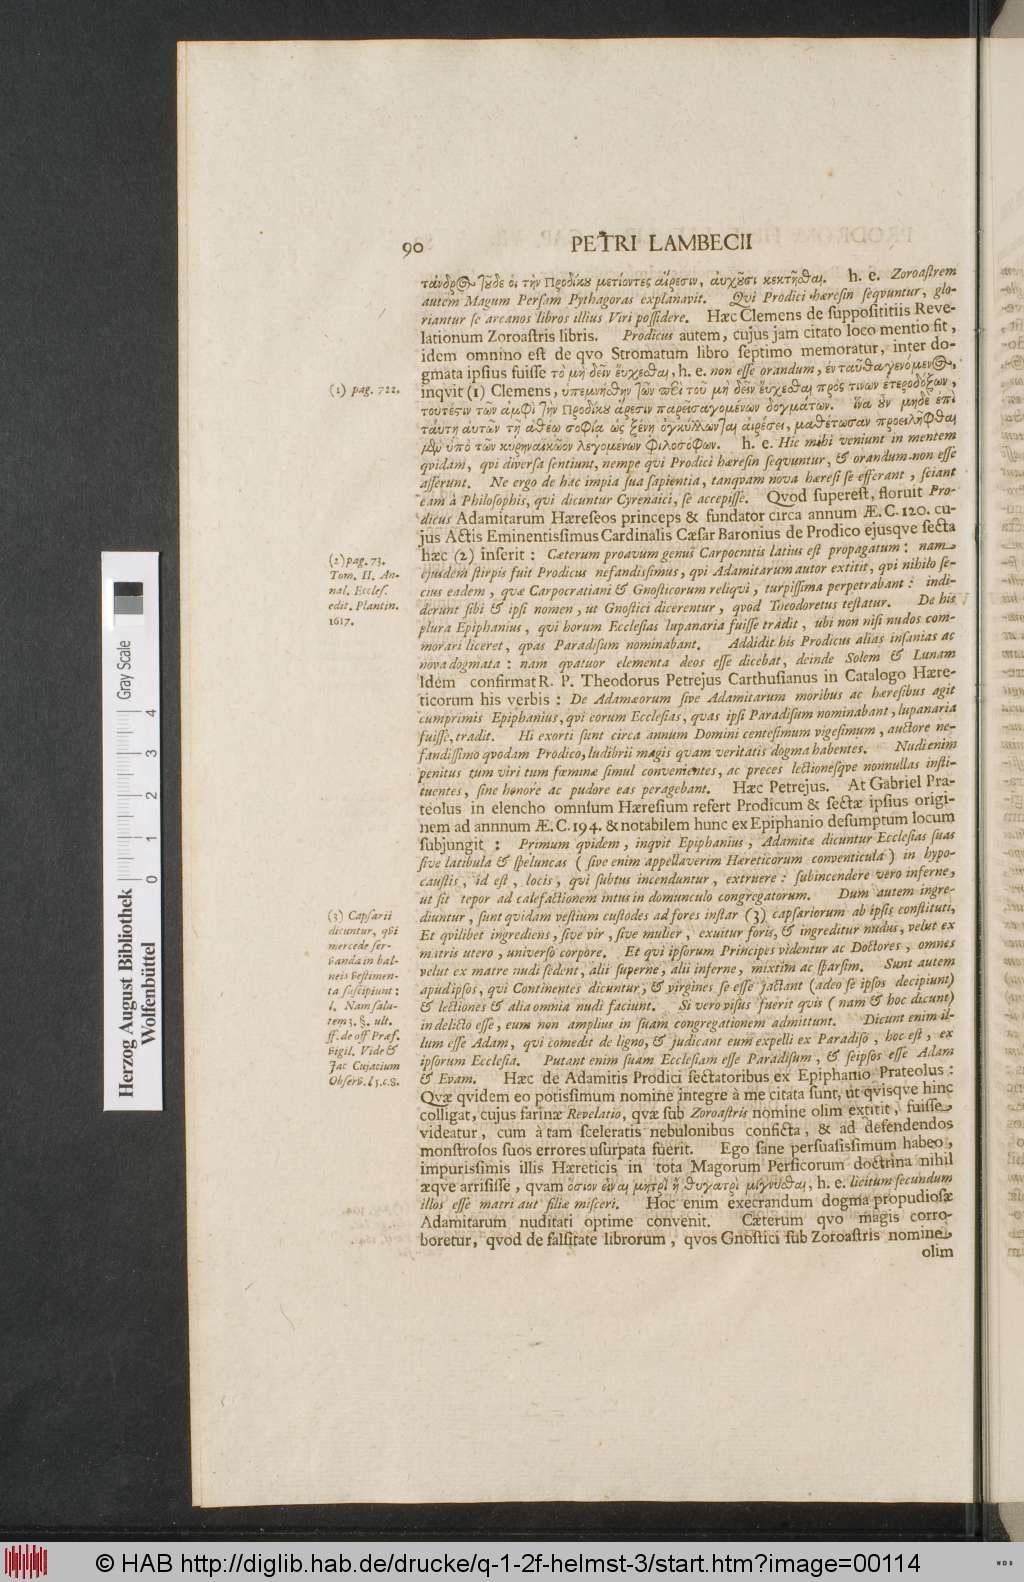 90 PETRI LAMBECII
τάνδρὸς τοῦδε ὁι τὴν Προδίκου μετίοντες ἁίρεσιν, ἀυχοῦσι κεκτῆσθαι. h. e. Zoroaſtrem
autem Magum Perſam Pythagoras explanavit. Qvi Prodici hæreſin ſeqvuntur, glo-
riantur ſe arcanos libros illius Viri poſſidere. Hæc Clemens de ſuppoſititiis Reve-
lationum Zoroaſtris libris. Prodicus autem, cujus jam citato loco mentio fit,
idem omnino eſt de qvo Stromatum libro ſeptimo memoratur, inter do-
gmata ipſius fuiſſe τὸ μὴ δεῖν ἔυχεσθαι, h. e. non eſſe orandum, ἐνταῦθα γενόμενος,
(1) pag. 722.
inqvit (1) Clemens, ὑπεμνήσθην τῶν περὶ τοῦ μὴ δεῖν ἔυχεσθαι πρός τινων ἑτεροδόξων,
τουτέστιν τῶν ἀμφὶ τὴν Προδίκου ἅιρεσιν παρεισαγομένων δογμάτων. ἵνα οὖν μηδὲ ἐπὶ
ταύτῃ ἀυτῶν τῇ ἀθέῳ σοφίᾳ ὡς ξένῃ ὀγκύλλωνται αἱρέσει, μαθέτωσαν προειλῆφθαι
μὲν ὑπὸ τῶν κυρηναϊκῶν λεγομένων φιλοσόφων. h. e. Hic mihi veniunt in mentem
qvidam, qvi diverſa ſentiunt, nempe qvi Prodici hæreſin ſeqvuntur, & orandum non eſſe
aſſerunt. Ne ergo de hac impia ſua ſapientia, tanqvam nova hæreſi ſe efferant, ſciant
eam à Philoſophis, qvi dicuntur Cyrenaici, ſe accepiſſe. Qvod ſupereſt, floruit Pro-
dicus Adamitarum Hæreſeos princeps & fundator circa annum Æ. C. 120. cu-
jus Actis Eminentisſimus Cardinalis Cæſar Baronius de Prodico ejusqve ſecta
(2) pag. 73.
Tom. II. An-
nal. Eccleſ.
edit. Plantin.
1617.
hæc (2) inſerit: Cæterum proavum genus Carpocratis latius eſt propagatum: nam
ejusdem ſtirpis fuit Prodicus nefandisſimus, qvi Adamitarum autor extitit, qvi nihilo ſe-
cius eadem, qvæ Carpocratiani & Gnoſticorum reliqvi, turpiſſima perpetrabant: indi-
derunt ſibi & ipſi nomen, ut Gnoſtici dicerentur, qvod Theodoretus teſtatur. De his
plura Epiphanius, qvi horum Ecclesias lupanaria fuiſſe tradit, ubi non niſi nudos com-
morari liceret, qvas Paradiſum nominabant. Addidit his Prodicus alias inſanias ac
nova dogmata: nam qvatuor elementa deos eſſe dicebat, deinde Solem & Lunam
Idem confirmat R. P. Theodorus Petrejus Carthuſianus in Catalogo Hære-
ticorum his verbis: De Adamæorum ſive Adamitarum moribus ac hæreſibus agit
cumprimis Epiphanius, qvi eorum Eccleſias, quas ipſi Paradiſum nominabant, lupanaria
fuiſſe, tradit. Hi exorti ſunt circa annum Domini centeſimum vigeſimum, auctore ne-
fandiſſimo qvodam Prodico, ludibrii magis qvam veritatis dogma habentes. Nudi enim
penitus tum viri tum fœminæ ſimul convenientes, ac preces lectionesqve nonnullas inſti-
tuentes, ſine honore ac pudore eas peragebant. Hæc Petrejus. At Gabriel Pra-
teolus in elencho omnium Hæreſium refert Prodicum & ſectæ ipſius origi-
nem ad annnum Æ. C. 194. & notabilem hunc ex Epiphanio deſumptum locum
ſubjungit: Primum qvidem, inqvit Epiphanius, Adamitæ dicuntur Eccleſias ſuas
ſive latibula & ſpeluncas (ſive enim appellaverim Hæreticorum conventicula) in hypo-
cauſtis, id eſt, locis, qvi ſubtus incenduntur, extruere: ſubincendere vero inferne,
ut ſit tepor ad calefactionem intus in domunculo congregatorum. Dum autem ingre-
(3) Capſarii
dicuntur, qvi
mercede ſer-
vanda in bal-
neis veſtimen-
ta ſuſcipiunt:
l. Nam ſalu-
tem 3. §. ult.
ff. de off Præf.
vigil. Vide &
Jac Cujacium
Obſerv. l 5. c. 8.
diuntur, ſunt qvidam veſtium cuſtodes ad fores inſtar (3) capſariorum ab ipſis conſtituti,
Et qvilibet ingrediens, ſive vir, ſive mulier, exuitur foris, & ingreditur nudus, velut ex
matris utero, universo corpore. Et qvi ipſorum Principes videntur ac Doctores, omnes
velut ex matre nudi ſedent, alii ſuperne, alii inferne, mixtim ac ſparſim. Sunt autem
apud ipſos, qvi Continentes dicuntur, & virgines ſe eſſe jactant (adeo ſe ipſos decipiunt)
& lectiones & alia omnia nudi faciunt. Si vero viſus fuerit qvis (nam & hoc dicunt)
in delicto eſſe, eum non amplius in ſuam congregationem admittunt. Dicunt enim il-
lum eſſe Adam, qvi comedit de ligno, & judicant eum expelli ex Paradiſo, hoc eſt, ex
ipſorum Eccleſia. Putant enim ſuam Eccleſiam eſſe Paradiſum, & ſeipſos eſſe Adam
& Evam. Hæc de Adamitis Prodici ſectatoribus ex Epiphanio Prateolus:
Qvæ qvidem eo potisſimum nomine integre à me citata ſunt, ut qvisqve hinc
colligat, cujus farinæ Revelatio, qvæ ſub Zoroaſtris nomine olim extitit, fuiſſe
videatur, cum à tam ſceleratis nebulonibus conficta, & ad defendendos
monſtroſos ſuos errores uſurpata fuerit. Ego ſane perſuaſisſimum habeo,
impurisſimis illis Hæreticis in tota Magorum Perſicorum doctrina nihil
æqve arriſiſſe, qvam ὅσιον εἶναι μητρὶ ἢ θυγατρὶ μίγνυσθαι, h. e. licitum ſecundum
illos eſſe matri aut filiæ miſceri. Hoc enim execrandum dogma propudioſæ
Adamitarum nuditati optime convenit. Cæterum qvo magis corro-
boretur, qvod de falſitate librorum, qvos Gnoſtici ſub Zoroaſtris nomine
olim
Herzog August Bibliothek
Wolfenbüttel
Gray Scale
0 1 2 3 4
© HAB http://diglib.hab.de/drucke/q-1-2f-helmst-3/start.htm?image=00114